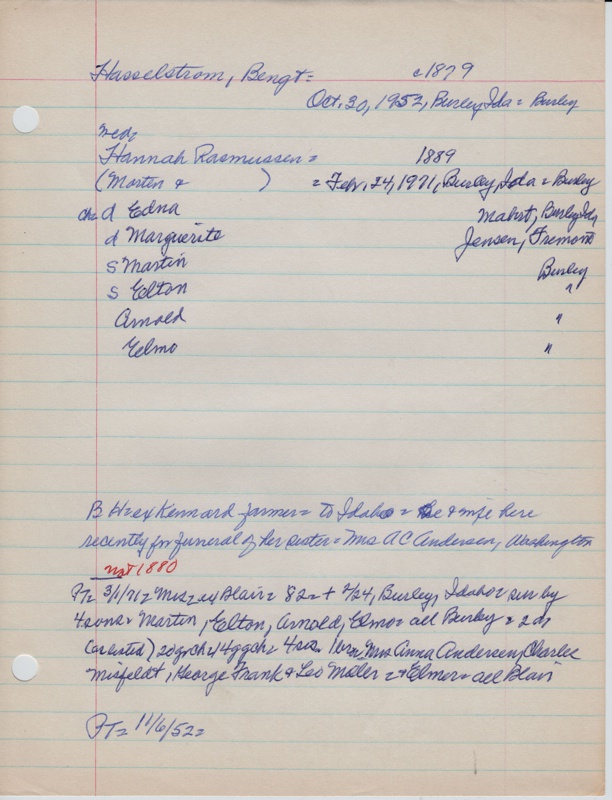 Hasselstrom, Bengt = c1879
Oct. 30, 1952, Burley, Ida = Burley
med:
Hannah Rasmussen = 1889
(Morten & ) = Feb. 24, 1971, Burley, Ida = Burley
ch: d Edna Mahrt, Burley Ida
d Marguerite Jensen, Fremont
s Martin Burley
s Elton "
Arnold "
Elmo "
B H = ex Kennard farmer = to Idaho = he & wife here
recently for funeral of her sister = Mrs A C Andersen, Washington
not 1880
PT = 3/1/71 = Mrs = ex Blair = 82 = + 2/24, Burley, Idaho = sur by
4 sons = Martin, Elton, Arnold, Elmo = all Burley = 2 ds
(as listed) 20 grch = 14 ggch = 4 sis = 1 bro = Mrs Anna Andersen, Charles
Misfeldt, George Frank & Leo Moller = & Elmer = all Blair
PT = 11/6/52 =